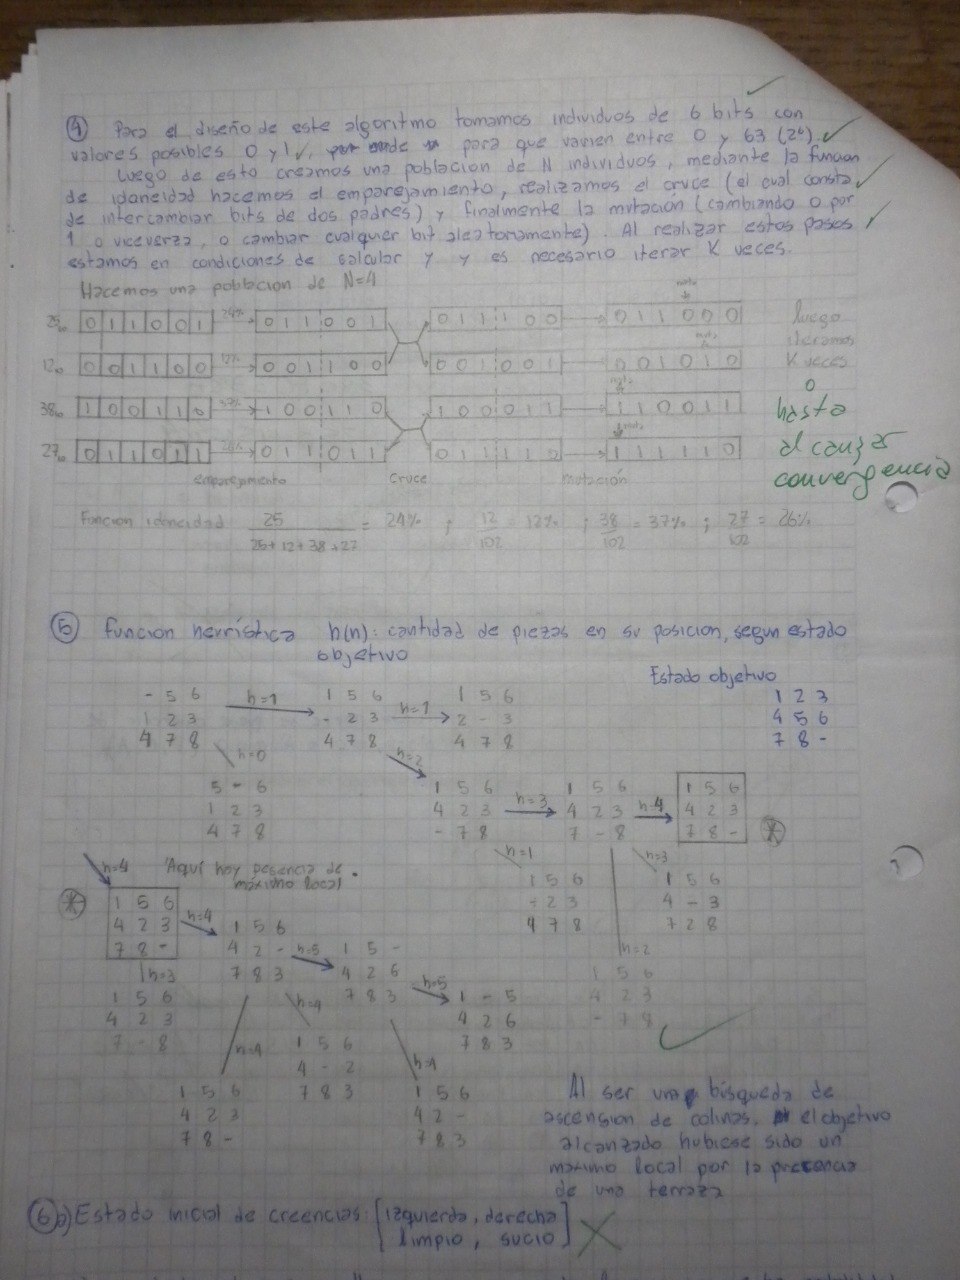 ④ Para el diseño de este algoritmo tomamos individuos de 6 bits con
valores posibles 0 y 1, para que varien entre 0 y 63 (2⁶).
Luego de esto creamos una poblacion de N individuos, mediante la funcion
de idoneidad hacemos el emparejamiento, realizamos el cruce (el cual consta
de intercambiar bits de dos padres) y finalmente la mutacion (cambiando 0 por
1 o viceverza, o cambiar cualquer bit aleatoriamente). Al realizar estos pasos
estamos en condiciones de calcular y y es necesario iterar K veces.
Hacemos una poblacion de N=4
25₁₀ 0 1 1 0 0 1 24% 0 1 1 0 0 1 0 1 1 1 0 0 0 1 1 0 0 0 luego
iteramos
12₁₀ 0 0 1 1 0 0 12% 0 0 1 1 0 0 0 0 1 0 0 1 0 0 1 0 1 0 K veces
o
38₁₀ 1 0 0 1 1 0 37% 1 0 0 1 1 0 1 0 0 0 1 1 1 1 0 0 1 1 hasta
27₁₀ 0 1 1 0 1 1 26% 0 1 1 0 1 1 0 1 1 1 1 0 1 1 1 1 1 0 alcanzar
convergencia
emparejamiento cruce mutación
Funcion idoneidad 25 = 24% ; 12 = 12% ; 38 = 37% ; 27 = 26%
25+12+38+27 102 102 102
⑤ Funcion heurística h(n): cantidad de piezas en su posicion, segun estado
objetivo
Estado objetivo
1 2 3
4 5 6
7 8 -
- 5 6 h=1 1 5 6 h=1 1 5 6
1 2 3 - 2 3 2 - 3
4 7 8 4 7 8 4 7 8
h=0 h=2
5 - 6 1 5 6 h=3 1 5 6 h=4 1 5 6
1 2 3 4 2 3 4 2 3 4 2 3
4 7 8 - 7 8 7 - 8 7 8 - *
h=1 h=3
1 5 6 1 5 6
- 2 3 4 - 3
4 7 8 7 2 8
h=2
1 5 6
4 2 3
- 7 8
h=4 Aquí hay presencia de
máximo local
* 1 5 6 h=4 1 5 6 h=5 1 5 - h=5 1 - 5
4 2 3 4 2 - 4 2 6 4 2 6
7 8 - 7 8 3 7 8 3 7 8 3
h=3 h=4 h=4 h=4
1 5 6 1 5 6
4 2 3 4 - 2
7 - 8 7 8 3
1 5 6 1 5 6
4 2 3 4 2 -
7 8 - 7 8 3
Al ser una búsqueda de
ascension de colinas, el objetivo
alcanzado hubiese sido un
máximo local por la presencia
de una terraza
⑥ a) Estado inicial de creencias: [izquierda, derecha
limpio, sucio]